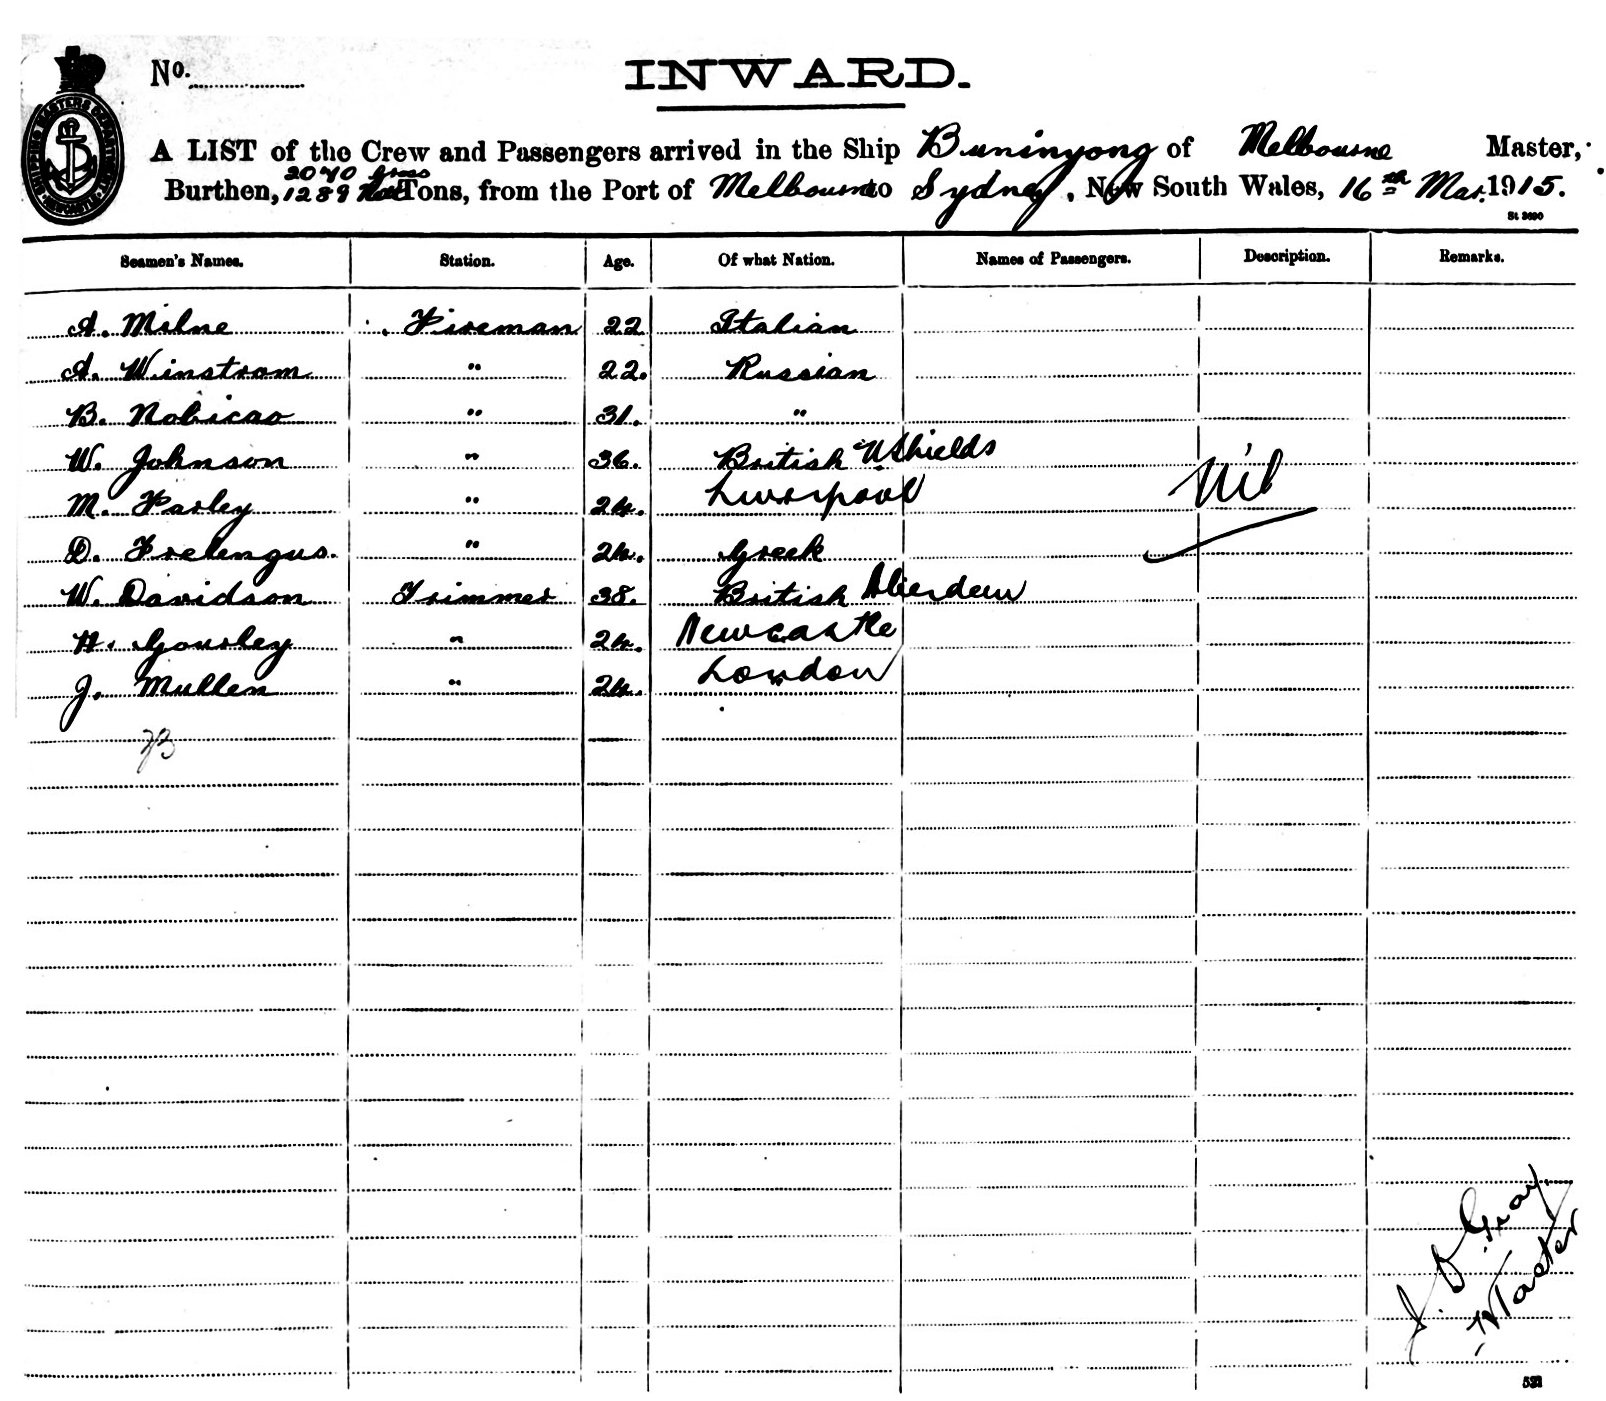 No.
INWARD.
SHIPPING MASTERS DEPARTMENT NEWCASTLE
A LIST of the Crew and Passengers arrived in the Ship Buninyong of Melbourne Master,
2070 Gross
Burthen, 1289 Nett Tons, from the Port of Melbourne to Sydney, New South Wales, 16th Mar. 1915.
Seamen's Names. Station. Age. Of what Nation. Names of Passengers. Description. Remarks.
A. Milne Fireman 22 Italian
A. Winstrom " 22. Russian
B. Nobicao " 31. "
W. Johnson " 36. British N. Shields
Nil
M. Farley " 24. Liverpool
D. Frelengus. " 24. Greek
W. Davidson Trimmer 38. British Aberdeen
H. Gourley " 24. Newcastle
J. Mullen " 24. London
J. D Gray
Master
521